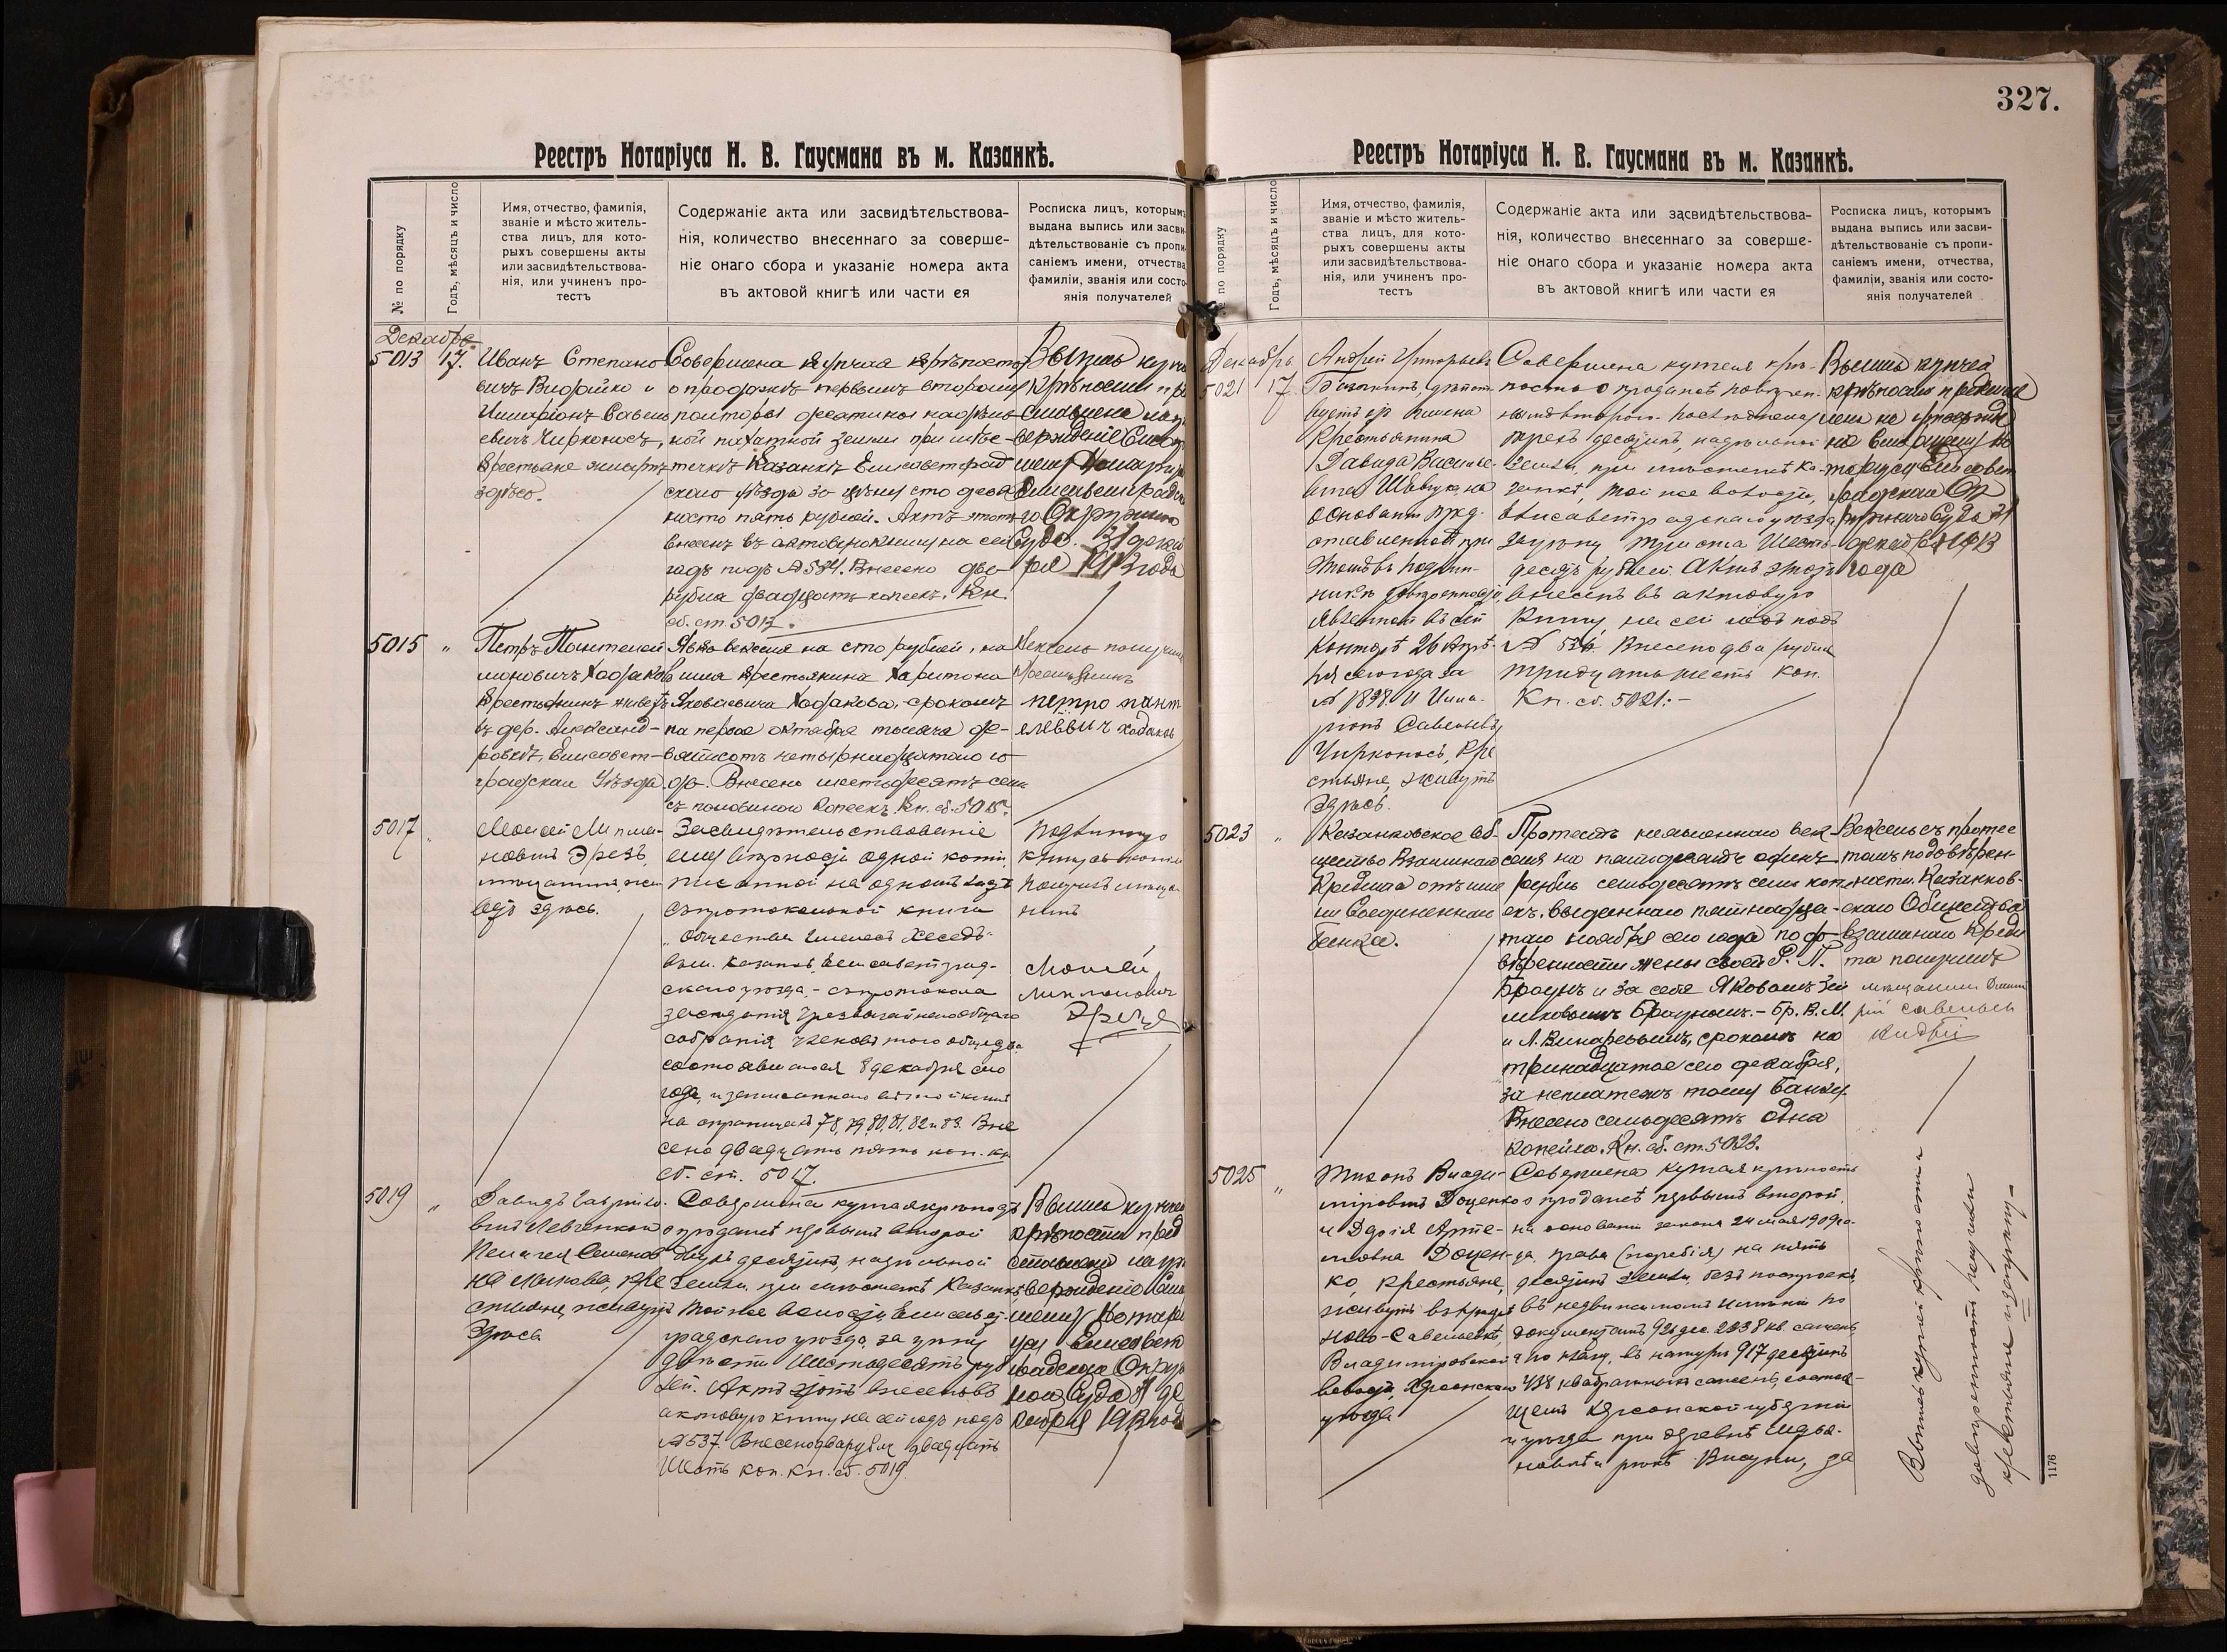 Реестръ Нотаріуса Н. В. Гаусмана въ м. Казанкѣ.
№ по порядку
Годъ, мѣсяцъ и число
Имя, отчество, фамилія,
званіе и мѣсто житель-
ства лицъ, для кото-
рыхъ совершены акты
или засвидѣтельствова-
нія, или учиненъ про-
тестъ
Содержаніе акта или засвидѣтельствова-
нія, количество внесеннаго за соверше-
ніе онаго сбора и указаніе номера акта
въ актовой книгѣ или части ея
Росписка лицъ, которымъ
выдана выпись или засви-
дѣтельствованіе съ пропи-
саніемъ имени, отчества,
фамиліи, званія или состо-
янія получателей
Декабрь
5013 17.
Иванъ Степано-
вичъ Видфійко и
Савель-
евичъ Чирконосъ,
крестьяне живутъ
здѣсь.
Совершена купчая крѣпость
о продажѣ первымъ второму
полторы десятины надѣль-
ной пахатной земли при мѣс-
течкѣ Казанкѣ Елисаветград
скаго уѣзда за цѣну сто девя
носто пять рублей. Актъ этотъ
внесенъ въ актовую книгу на сей
годъ подъ № 534. Внесено два
рубля двадцать копеекъ. Кн.
сб. ст. 5013.
Выпись купч
крѣпости пре
ставлена на ут
вержденіе Старш
шему Нотаріу
Елисаветградска
го Окружнаго
Суда. 31 декаб
ря 1913 года
5015 "
Петръ Пантелей
моновичъ Ходаковъ
крестьянинъ живетъ
въ дер. Александ-
ровкѣ, Елисавет-
градскаго Уѣзда.
Явка векселя на сто рублей, на
имя крестьянина Харитона
Яковлевича Ходакова, срокомъ
на первое октября тысяча де-
вятисотъ четырнадцатаго го-
да. Внесено шестьдесятъ семь
съ половиною копеекъ. Кн. сб. 5015.
Вексель получилъ
крестьянинъ
петро пант
елеввич ходаков
5017 "
Моисей Липма-
новичъ Эрезъ,
мѣщанинъ, жи-
ветъ здѣсь.
Засвидѣтельствованіе
ему вѣрности одной копіи,
писанной на одномъ листѣ
съ протокольной книги
„Общества Гмелесъ Хеседъ"
въ м. Казанкѣ, Елисаветград-
скаго уѣзда, - съ протокола
засѣданія Чрезвычайнаго общаго
собранія членовъ того общества
состоявшагося 8 декабря сего
года, и записаннаго въ той книгѣ
на страницахъ 78, 79, 80, 81, 82 и 83. Вне
сено двадцать пять коп. Кн
сб. ст. 5017.
Подлинную
книгу съ копіею
получилъ мѣща
нинъ
Моисей
Липманович
Эрезъ
5019 "
Давидъ Гаврило-
вичъ Левченко и
Пелагея Семенов
на Лыкова, кре
стьяне, живутъ
здѣсь
Совершена купчая крѣпость
о продажѣ первымъ второй
двухъ десятинъ, надѣльной
земли, при мѣстечкѣ Казанкѣ,
той же волости, Елисавет-
градскаго уѣзда, за цѣну
двѣсти шестьдесятъ руб
лей. Актъ этотъ внесенъ въ
актовую книгу на сей годъ подъ
№ 537. Внесено два рубля двадцать
шесть коп. Кн. сб. 5019.
Выпись купчей
крѣпости пред
ставлена на ут
вержденіе Стар
шему Нотарі
усу Елисавет
градскаго Окруж
наго Суда 31 де
кабря 1913 года
327.
Реестръ Нотаріуса Н. В. Гаусмана въ м. Казанкѣ.
№ по порядку
Годъ, мѣсяцъ и число
Имя, отчество, фамилія,
званіе и мѣсто житель-
ства лицъ, для кото-
рыхъ совершены акты
или засвидѣтельствова-
нія, или учиненъ про-
тестъ
Содержаніе акта или засвидѣтельствова-
нія, количество внесеннаго за соверше-
ніе онаго сбора и указаніе номера акта
въ актовой книгѣ или части ея
Росписка лицъ, которымъ
выдана выпись или засви-
дѣтельствованіе съ пропи-
саніемъ имени, отчества,
фамиліи, званія или состо-
янія получателей
Декабрь
5021 17
Андрей Григорьевъ
дѣйст-
вуетъ отъ имени
крестьянина
Давида Василье-
вича на
основаніи пред-
ставленной при
этомъ подлин-
ника довѣренности,
явленной въ сей
Конторѣ 26 Апрѣ-
ля сего года за
№ 1838. и
Савельевъ
Чирконосъ, кре
стьяне, живутъ
здѣсь.
Совершена купчая крѣ-
пость о продажѣ
второму
трехъ десятинъ, надѣльной
земли, при мѣстечкѣ Ка-
занкѣ, той же волости,
Елисаветградскаго уѣзда
за цѣну триста шесть-
десятъ рублей. Актъ этотъ
внесенъ въ актовую
книгу на сей годъ подъ
№ Внесено два рубля
тридцать шесть коп.
Кн. сб. 5021.-
Выпись купчей
крѣпости представ
лена на утвержде
ніе Старшему Но
таріусу Елисавет
градскаго Ок
ружнаго Суда 31
декабря 1913
года
5023 "
Казанковское Об-
щество Взаимнаго
Кредита отъ име
ни Соединеннаго
банка.
Протестъ неявленнаго век
селя на пятьдесятъ одинъ
рубль семьдесятъ семь коп.
екъ, выданнаго пятнадца-
таго ноября сего года по до
вѣренности жены своей Р. Л.
Браунъ и за себя Яковомъ
Брауномъ. - Бр. В. М.
и Л. Винаревымъ, срокомъ на
тринадцатое сего декабря,
за неплатежъ тому банку.
Внесено семьдесятъ одна
копейка. Кн. сб. ст. 5023.
Вексель съ протес
томъ по довѣрен-
ности Казанков-
скаго Общества
взаимнаго Креди
та получилъ
мѣщанинъ Дмит
рій Савельевъ
5025 "
Тихонъ Влади-
міровичъ Доценко
и Дарія Арте-
мовна Доцен-
ко, крестьяне,
живутъ въ
Ново-Савельевкѣ,
Владиміровской
волости, Херсонскаго
уѣзда
Совершена купчая крѣпость
о продажѣ первымъ второй,
на основаніи закона 24 мая 1909 го-
да, права (погребія) на пять
десятинъ земли, безъ построекъ,
въ недвижимомъ имѣніи по
документамъ 926 дес. 2238 кв. сажень,
а по плану, въ натурѣ 917 десятинъ
438 квадратныхъ сажень, состоя-
щемъ Херсонской губерніи
и уѣзда при деревнѣ
и рѣкѣ Висуни, за
Выпись купчей крѣпости и
довѣренность получили
крестьяне
1176